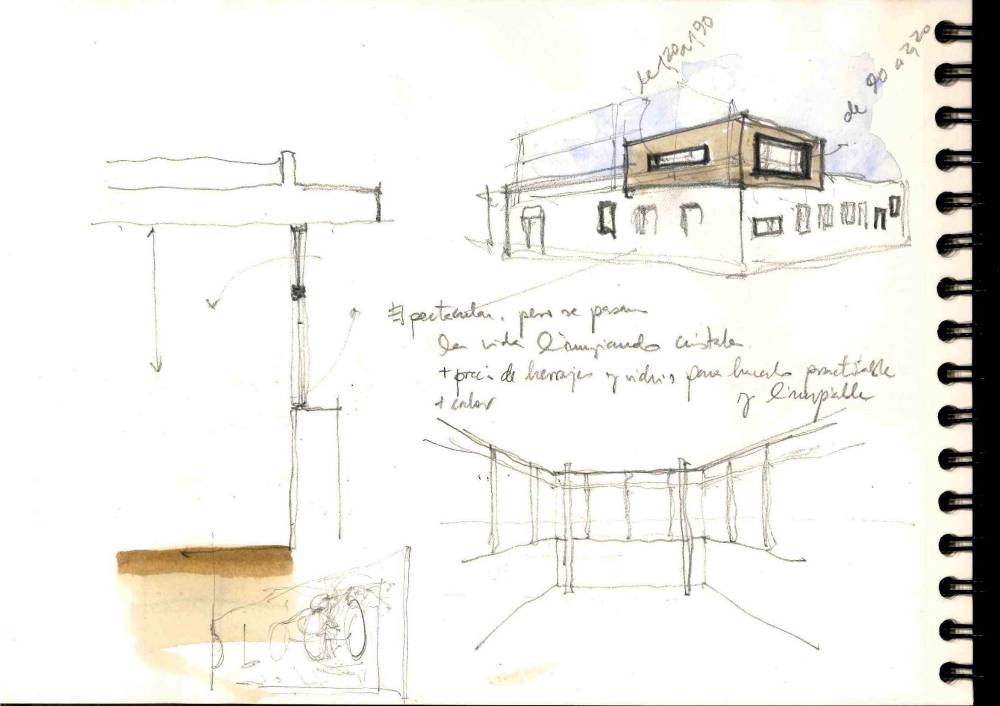 de 120 a 190
de 90 a 220
Espectacular, pero se pasan
la vida limpiando cristales
+ precio de herrajes y vidrios para hacerlo practicable
y limpiable
+ calor